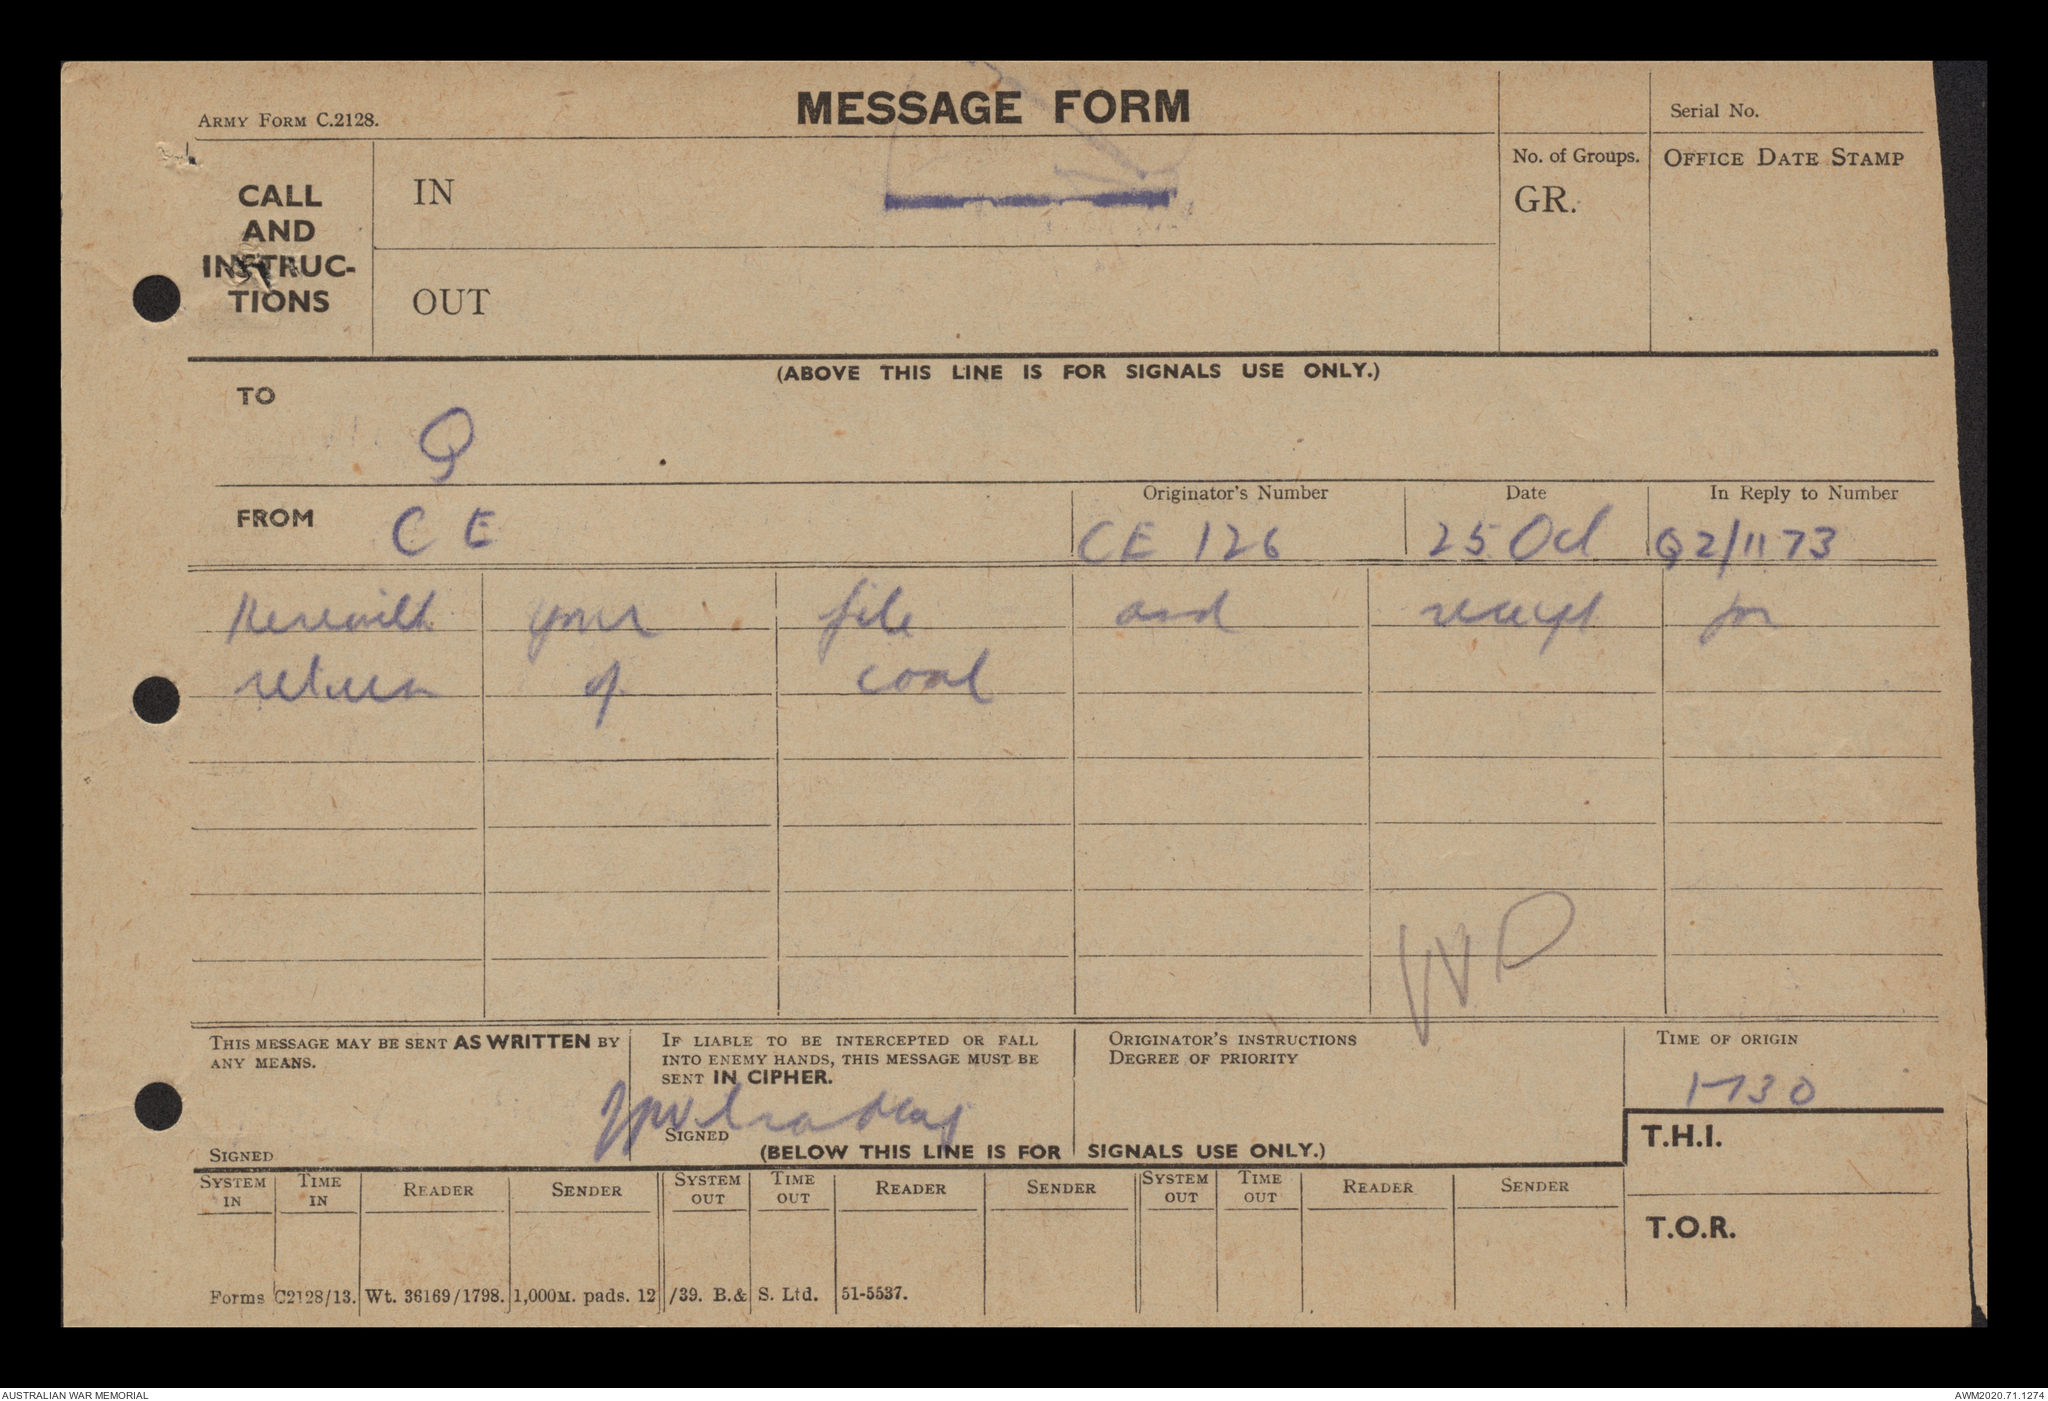 ARMY FORM C.2128.
MESSAGE FORM
Serial No.
CALL AND INSTRUC-TIONS
IN
No. of Groups.
GR.
OFFICE DATE STAMP
OUT
(ABOVE THIS LINE IS FOR SIGNALS USE ONLY.)
TO
Q
FROM
C E
Originator's Number
CE 126
Date
25 Oct
In Reply to Number
Q2/1173
Herewith your file and receipt for
return of coal
WD
THIS MESSAGE MAY BE SENT AS WRITTEN BY
ANY MEANS.
SIGNED
IF LIABLE TO BE INTERCEPTED OR FALL
INTO ENEMY HANDS, THIS MESSAGE MUST BE
SENT IN CIPHER.
SIGNED
ORIGINATOR'S INSTRUCTIONS
DEGREE OF PRIORITY
TIME OF ORIGIN
1730
(BELOW THIS LINE IS FOR SIGNALS USE ONLY.)
T.H.I.
SYSTEM IN
TIME IN
READER
SENDER
SYSTEM OUT
TIME OUT
READER
SENDER
SYSTEM OUT
TIME OUT
READER
SENDER
T.O.R.
Forms C2128/13. Wt. 36169/1798. 1,000M. pads. 12/39. B.& S. Ltd. 51-5537.
AUSTRALIAN WAR MEMORIAL
AWM2020.71.1274